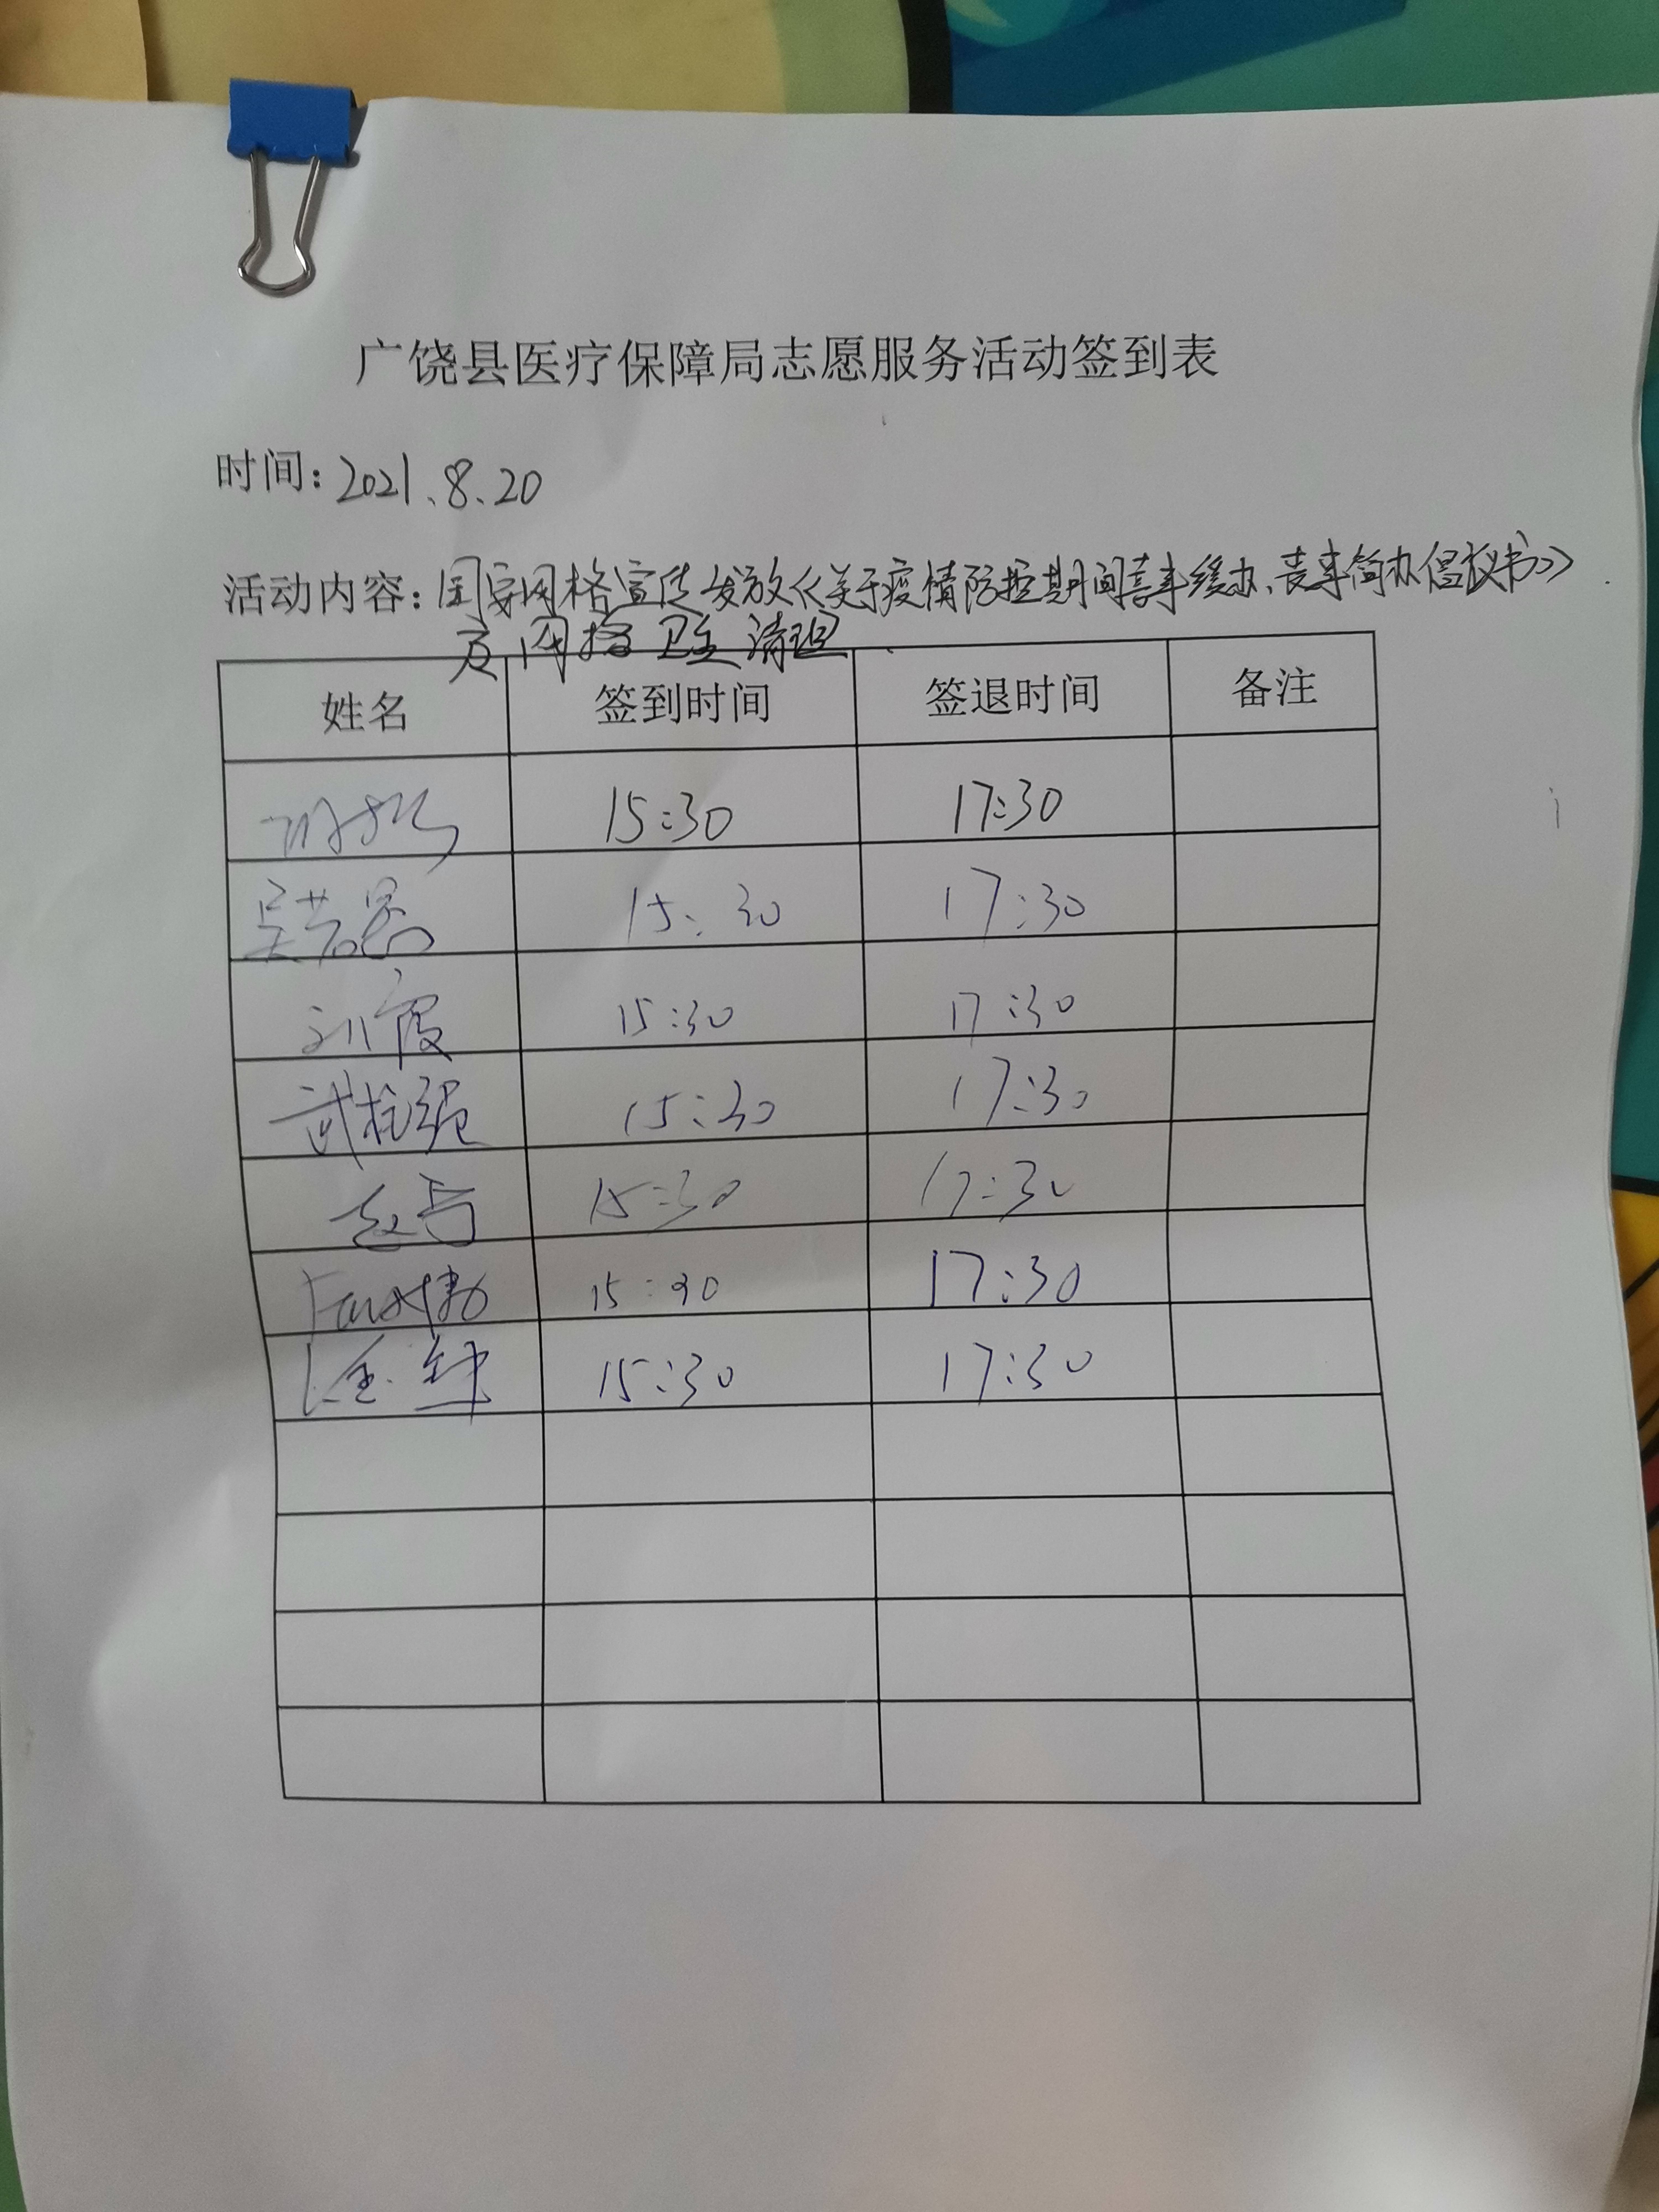 广饶县医疗保障局志愿服务活动签到表
时间：2021.8.20
活动内容：国安网格宣传发放《关于疫情防控期间喜事缓办、丧事简办倡议书》
及网格卫生清理
姓名 签到时间 签退时间 备注
15:30 17:30
15:30 17:30
刘霞 15:30 17:30
武拴强 15:30 17:30
15:30 17:30
15:30 17:30
15:30 17:30